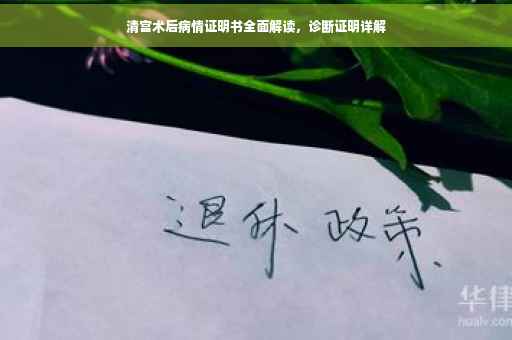 清宫术后病情证明书全面解读，诊断证明详解
退休 政策
华律
hualv.com